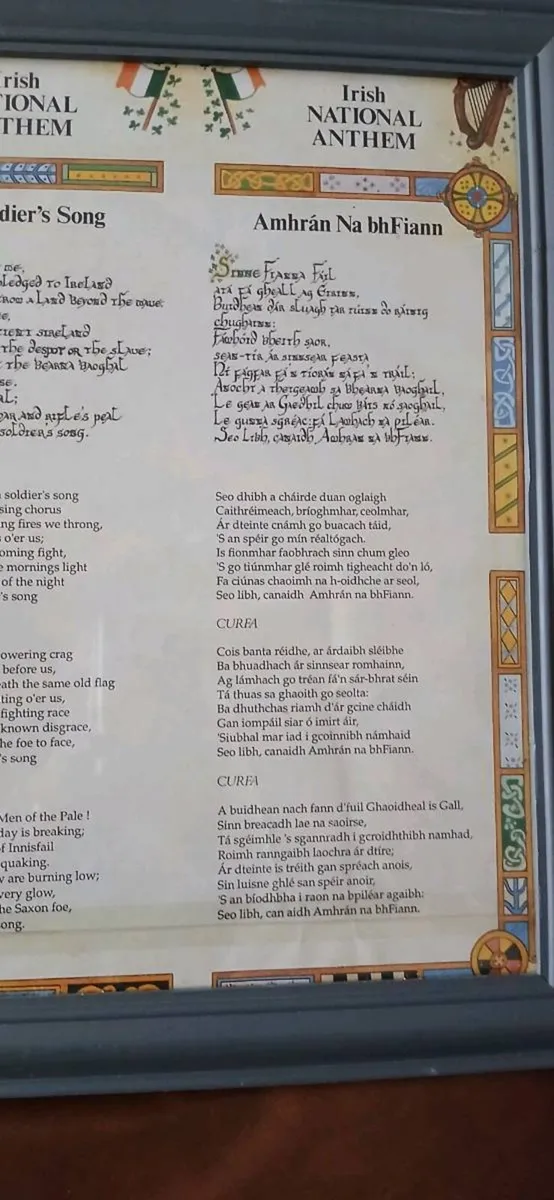 rish
IONAL
THEM
dier's Song
me,
ledged to Ireland
from a land beyond the wave
e,
cient sireland
the despot or the slave;
the bearna baoghal
se.
al;
ar and rifle's peal
soldier's song.
soldier's song
sing chorus
ng fires we throng,
o'er us;
oming fight,
e mornings light
of the night
's song
owering crag
before us,
eath the same old flag
ting o'er us,
fighting race
known disgrace,
he foe to face,
's song
Men of the Pale !
day is breaking;
f Innisfail
quaking.
w are burning low;
very glow,
he Saxon foe,
ong.
Irish
NATIONAL
ANTHEM
Amhrán Na bhFiann
Sinne Fianna Fáil
atá fá gheall ag Éirinn,
Buidhean dár sluagh tar rúinn do ráinig
chughainn:
Fámhóid bheith saor.
sean-tír ár sinnsear feasta
Ní fágfar fá'n tíorán ná fá'n tráil;
Anocht a theigeamh sa bhearna baoghail,
Le gean ar Gaedhil chum báis nó saoghail,
Le gunna sgréac: fá lamhach na piléar.
Seo libh, canaidh, Amhran na bhFiann.
Seo dhibh a cháirde duan oglaigh
Caithréimeach, bríoghmhar, ceolmhar,
Ár dteinte cnámh go buacach táid,
'S an spéir go mín réaltógach.
Is fionmhar faobhrach sinn chum gleo
'S go tiúnmhar glé roimh tigheacht do'n ló,
Fa ciúnas chaoimh na h-oidhche ar seol,
Seo libh, canaidh Amhrán na bhFiann.
CURFA
Cois banta réidhe, ar árdaibh sléibhe
Ba bhuadhach ár sinnsear romhainn,
Ag lámhach go tréan fá'n sár-bhrat séin
Tá thuas sa ghaoith go seolta:
Ba dhuthchas riamh d'ár gcine cháidh
Gan iompáil siar ó imirt áir,
'Siubhal mar iad i gcoinnibh námhaid
Seo libh, canaidh Amhrán na bhFiann.
CURFA
A buidhean nach fann d'fuil Ghaoidheal is Gall,
Sinn breacadh lae na saoirse,
Tá sgéimhle 's sgannradh i gcroidhthibh namhad,
Roimh ranngaibh laochra ár dtire;
Ár dteinte is tréith gan spréach anois,
Sin luisne ghlé san spéir anoir,
'S an bíodhbha i raon na bpiléar agaibh:
Seo libh, can aidh Amhrán na bhFiann.